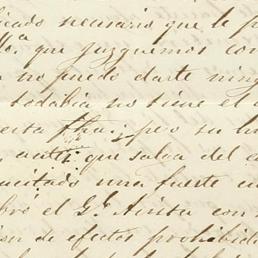 icado necesario que te p
que juzguemos con
no puedo darte ning
todabia no tiene el
esta fha; pero su
antes que salva del
citado una fuerte
bró el Gl. Arista con
de efectos prohibid